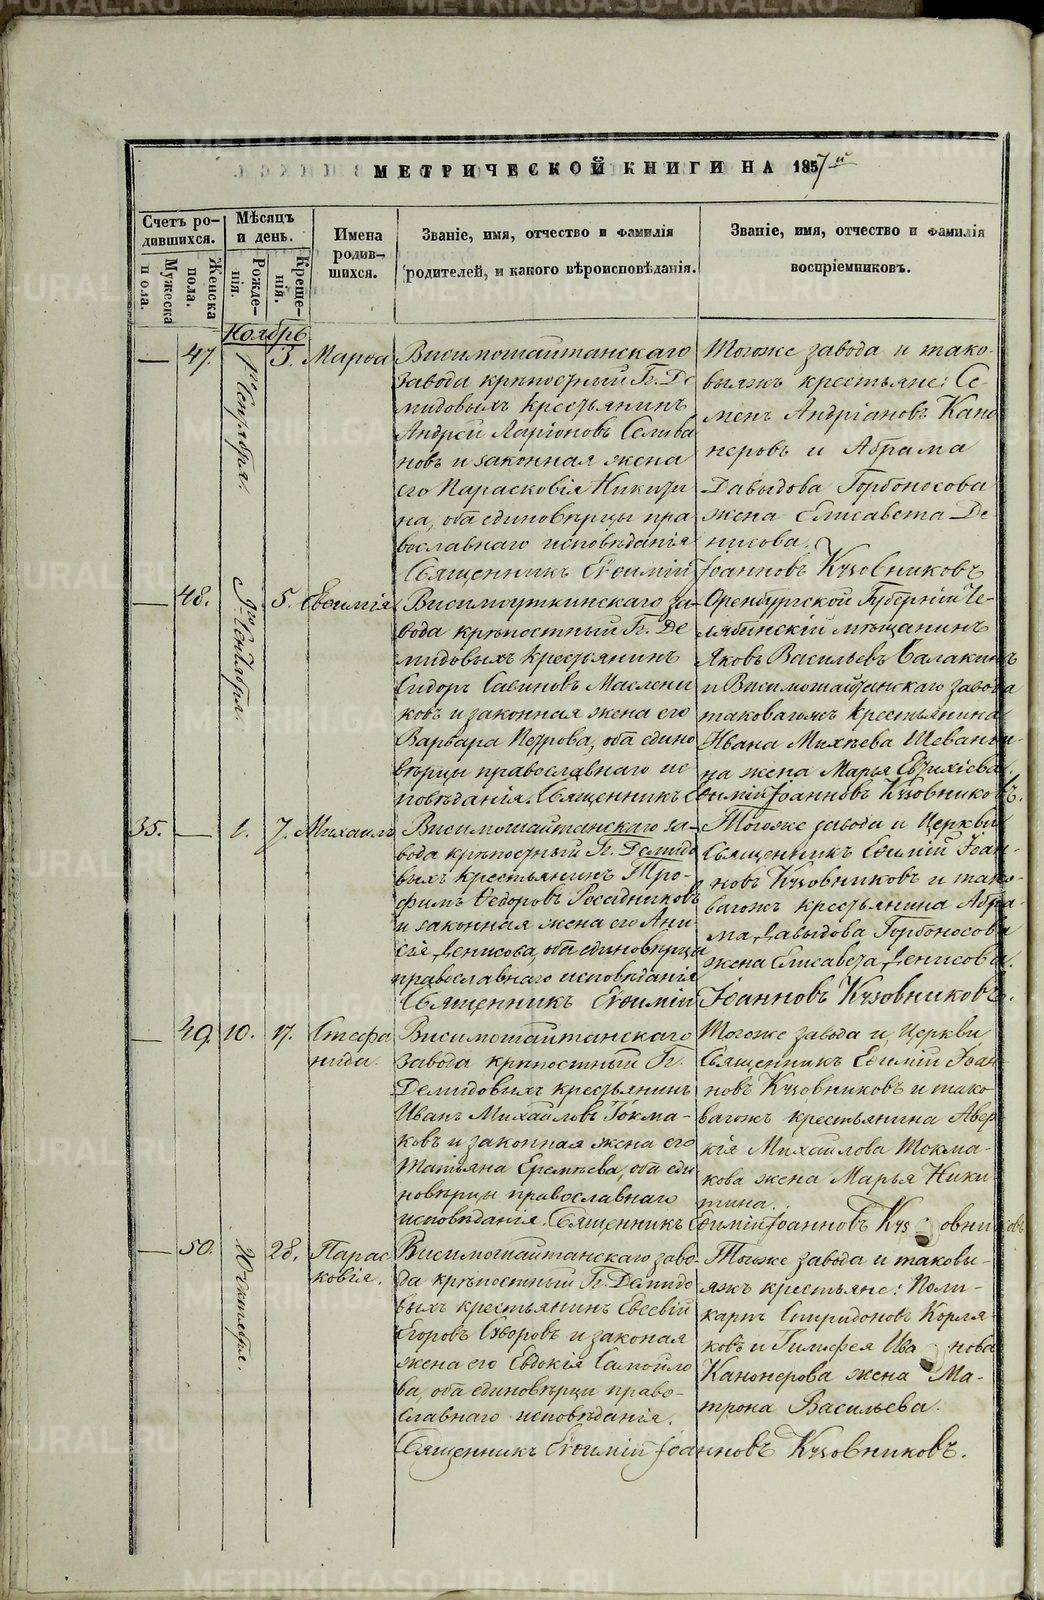 МЕТРИЧЕСКОЙ КНИГИ НА 1857й
Счетъ родившихся.
Мужеска пола.
Женска пола.
Мѣсяцъ и день.
Рожденія.
Крещенія.
Имена родившихся.
Званіе, имя, отчество и фамилія
родителей, и какого вѣроисповѣданія.
Званіе, имя, отчество и фамилія
воспріемниковъ.
Ноябрь
— 47. Сентября. 3. Марѳа
Висимошайтанскаго
завода крѣпостный Гг. Де
мидовыхъ крестьянинъ
Андрей Ларіоновъ Селива
новъ и законная жена
его Парасковія Никити
на, оба единовѣрцы пра
вославнаго исповѣданія
Тогоже завода и тако-
выяжъ крестьяне: Се-
менъ Андріановъ Кано
неровъ и Абрама
Давыдова Горбоносова
жена Елисавета Де
нисова.
Священникъ Евѳимій Іоанновъ Кузовниковъ
— 48. 5. Евѳимія
Висимоуткинскаго за-
вода крѣпостный Гг. Де
мидовыхъ крестьянинъ
Сидоръ Савиновъ Маслени
ковъ и законная жена его
Варвара Петрова, оба едино
вѣрцы православнаго ис
повѣданія.
Оренбургской Губерніи Че-
лябинскій мѣщанинъ
Яковъ Васильевъ Балакинъ
и Висимошайтанскаго завода
таковагожъ крестьянина
Ивана Михѣева Шевань
на жена Марья Евтихіева.
Священникъ Евѳимій Іоанновъ Кузовниковъ.
35. — 1. 7. Михаилъ
Висимошайтанскаго за-
вода крѣпостный Гг. Демидо
выхъ крестьянинъ Тро-
фимъ Ѳедоровъ Росадниковъ
и законная жена его Ани
сія Денисова, оба единовѣрца
православнаго исповѣданія
Тогоже завода и Церкви
Священникъ Евѳимій Іоан-
новъ Кузовниковъ и тако-
вагожъ крестьянина Абра-
ма Давыдова Горбоносова
жена Елисавета Денисова.
Священникъ Евѳимій Іоанновъ Кузовниковъ.
— 49. 10. 17. Стефа
нида.
Висимошайтанскаго
завода крѣпостный Гг.
Демидовыхъ крестьянинъ
Иванъ Михайловъ Токма-
ковъ и законная жена его
Татьяна Еремѣева, оба еди
новѣрцы православнаго
исповѣданія.
Тогоже завода и Церкви
Священникъ Евѳимій Іоан
новъ Кузовниковъ и тако
вагожъ крестьянина Авер
кія Михайлова Токма-
кова жена Марья Ники
тина.
Священникъ Евѳимій Іоанновъ Кузовниковъ
— 50. 20 октября. 28. Парас
ковія.
Висимошайтанскаго заво-
да крѣпостный Гг. Демидо
выхъ крестьянинъ Евсевій
Егоровъ Суворовъ и законая
жена его Евдокія Самойло
ва, оба единовѣрцы право-
славнаго исповѣданія.
Тогоже завода и таковы-
яжъ крестьяне: Поли-
карпъ Спиридоновъ Корля
ковъ и Тимофея Иванова
Канонерова жена Ма-
трона Васильева.
Священникъ Евѳимій Іоанновъ Кузовниковъ.
METRIKI.GASO-URAL.RU